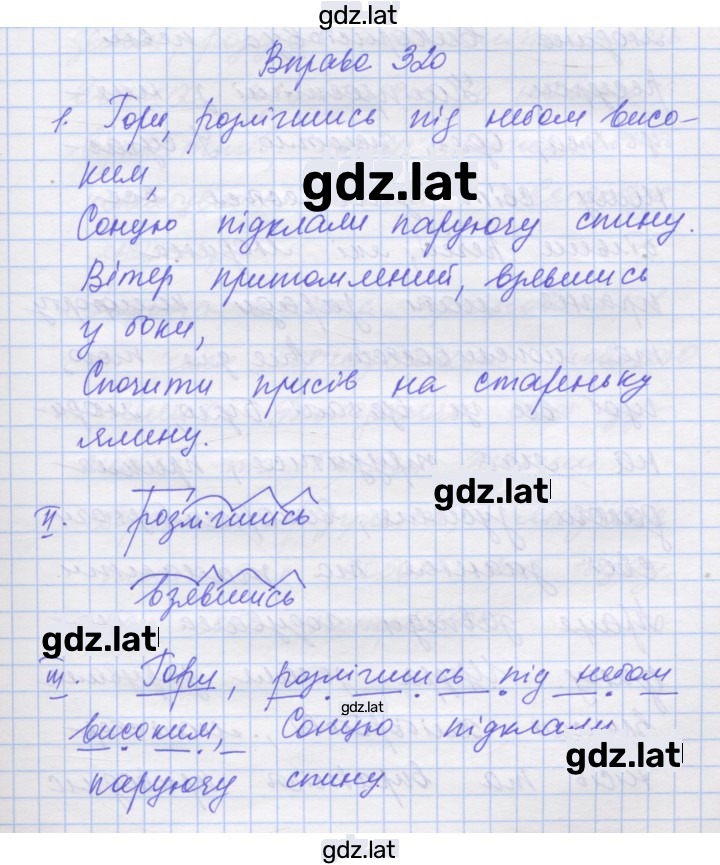 gdz.lat
Вправа 320
1. Гори, розлігшись під небом висо-
ким,
gdz.lat
Сонцю підклали паруючу спину.
Вітер притомлений, взявшись
у боки,
Спочити присів на стареньку
ялину.
gdz.lat
II. розлігшись
взявшись
gdz.lat
III. Гори, розлігшись під небом
gdz.lat
високим, Сонцю підклали
gdz.lat
паруючу спину
gdz.lat